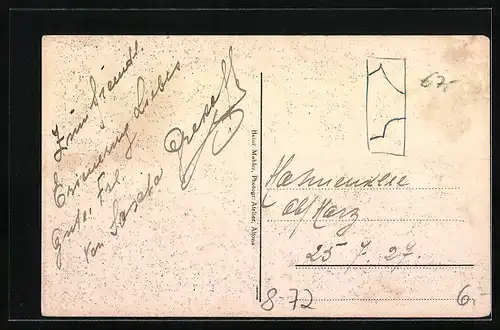 Zum Freundl.
Erinnerung Liebes
gutes Frl.
von Sascha
Heinr. Mahler, Photogr. Atelier, Altona
67,-
Hahnenklee
Ob/Harz
25 7. 27.
8-72
6,-